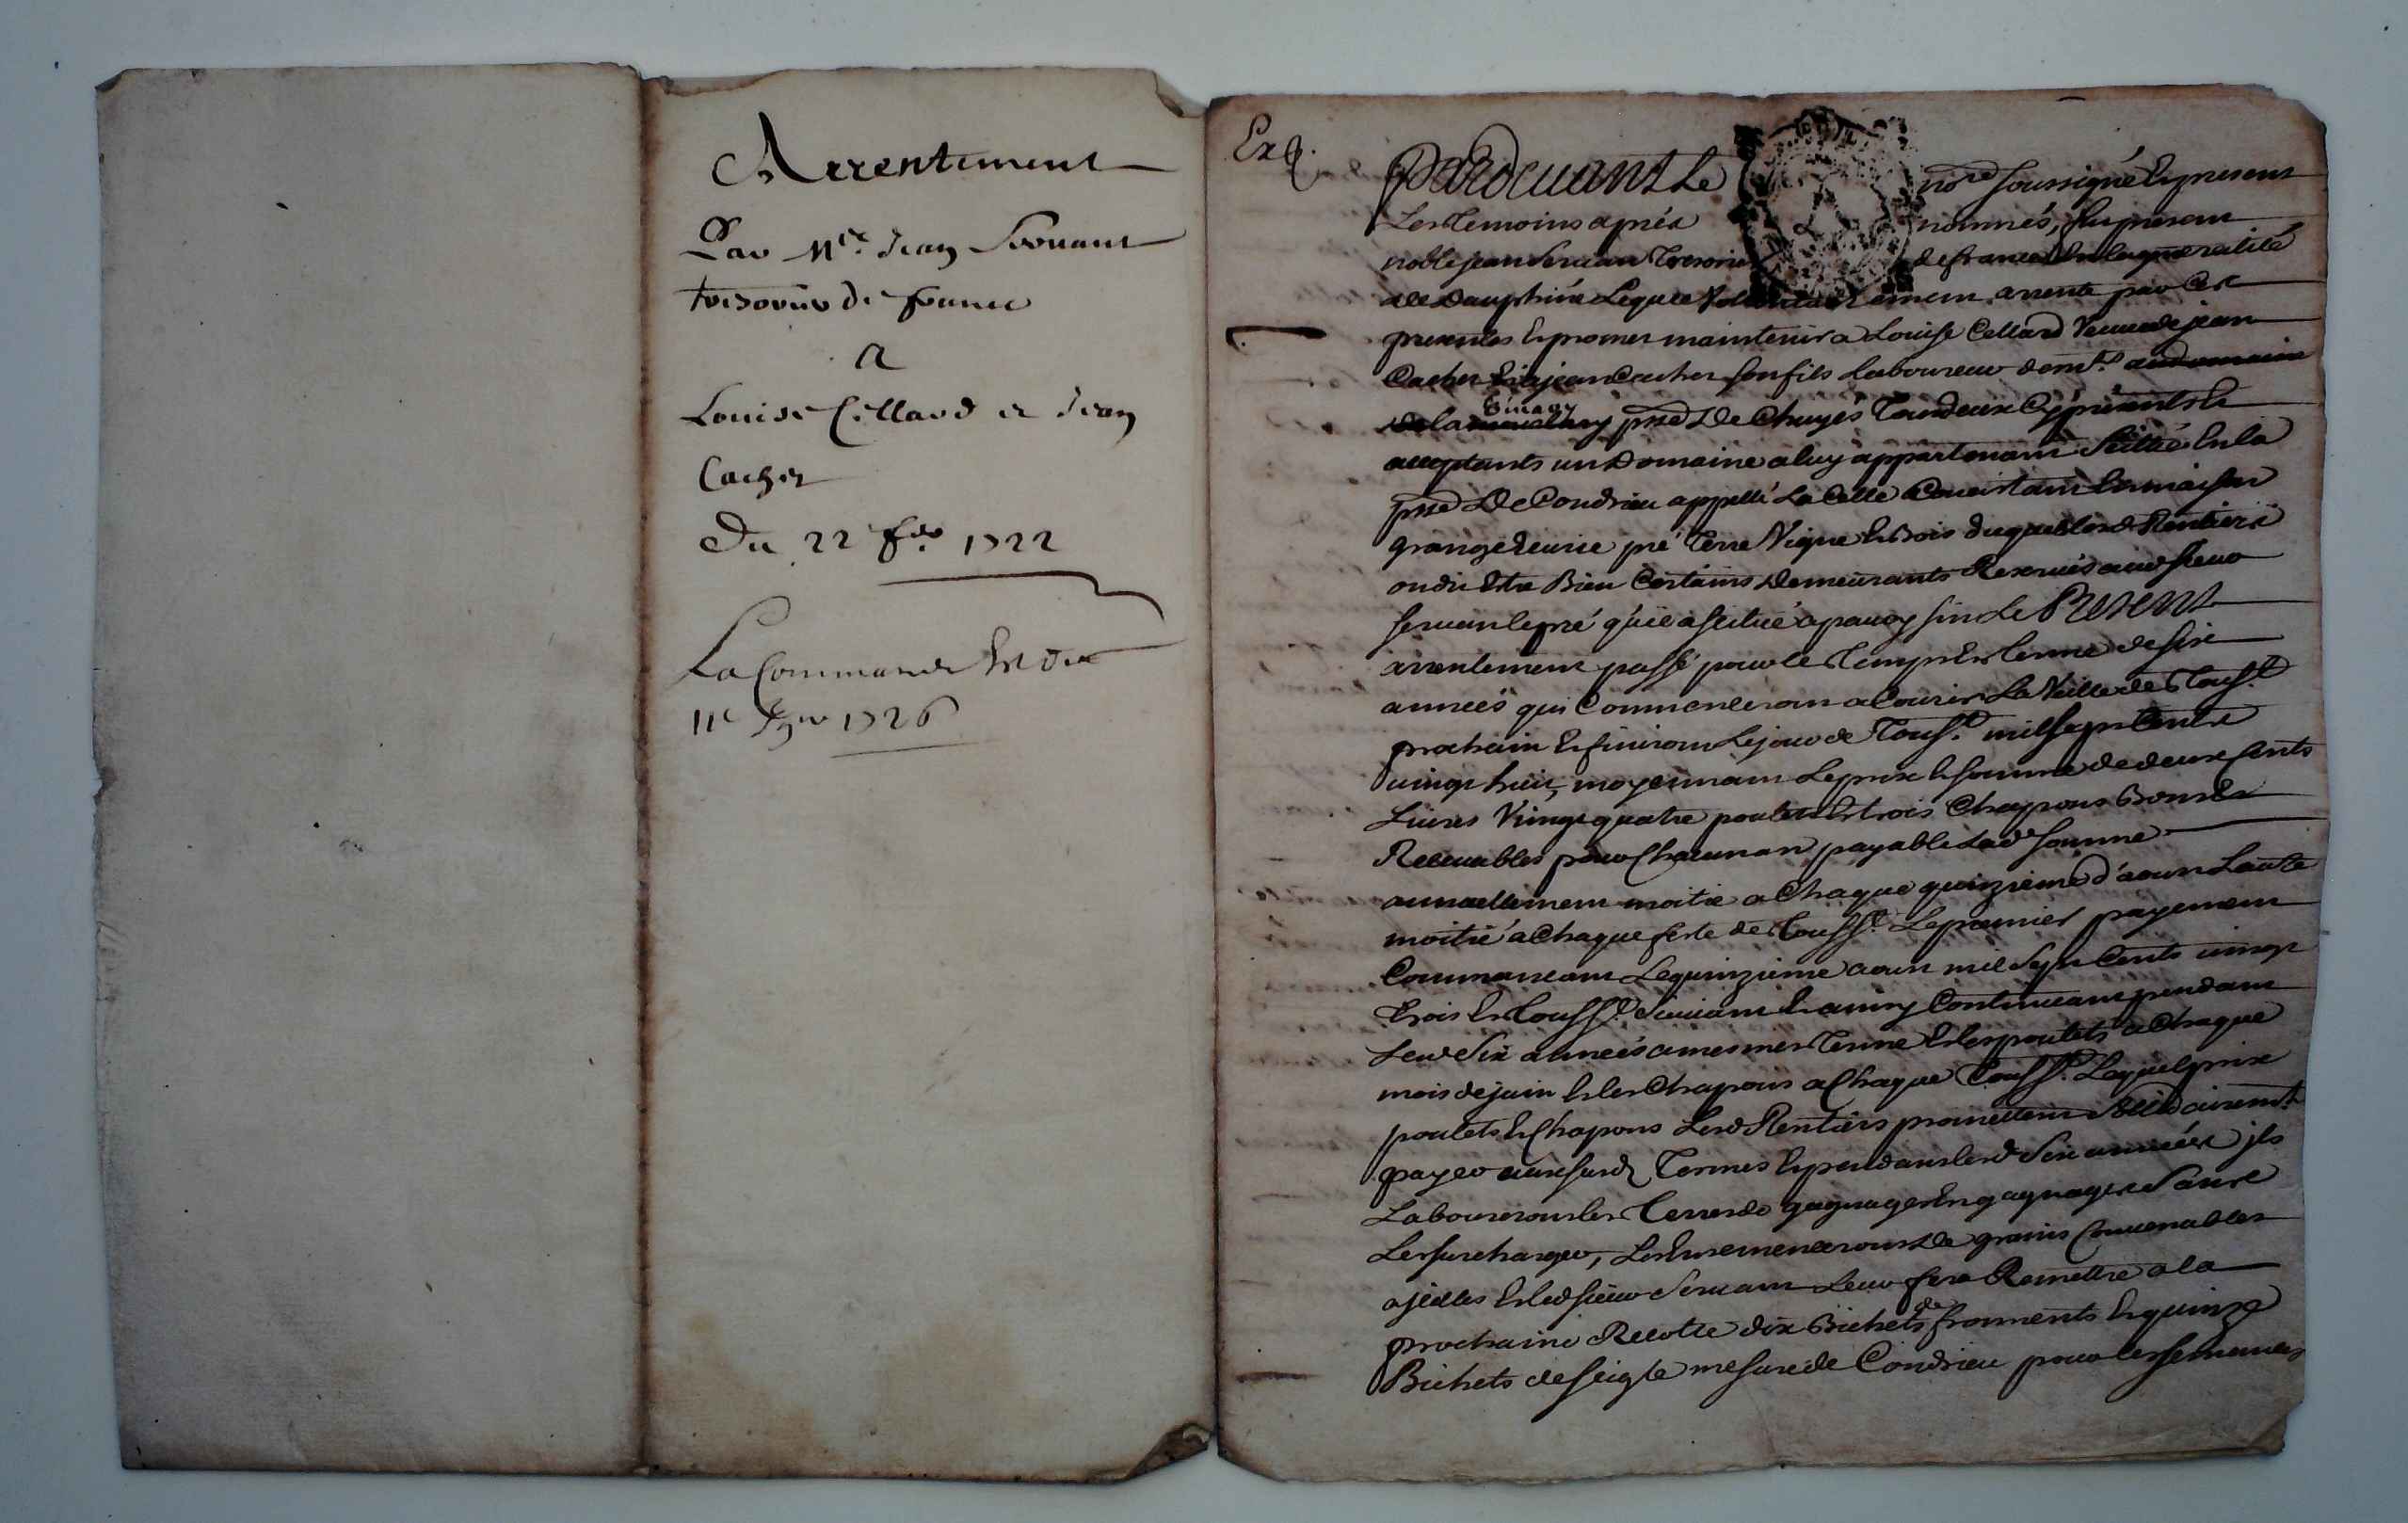 Arrentement
Par Mre. Jean Servant
tresorier de france
a
Louise Cellard et Jean
Cachet
Du 22 fer. 1722
La Commande Est du
11e 1726
Exp.
Pardevant Le nore soussigné Et present
Les Temoins aprés nommés, fut present
noble jean Servan Tresorier de france En la generalité
de dauphiné Lequel Volontairement arrente par Ces
presentes Et promet maintenir a Louise Cellard Veuve de jean
Cachet Et a jean Cachet son fils Laboureur demt. au domaine
de la psse De Chuyés Tous deux Cy presents Et
acceptants un Domaine a luy appartenant scittué En la
psse De Condrieu appellé La Celle Concistant En maison
grange Ecurie pré Terre Vigne Et Bois duquel Lesd Rentiers
ont dit Etre Bien Certains demeurants Reservés aud sieur
servan le pré qu'il a scitué a Le Present
arrentement passé pour le Temps Et terme de six
années qui Commenceront a Courir La Veille de Toussts
prochain Et finiront Le jour de Toussts mil sept Cents
vingt huit, moyennant Le prix Et somme de deux Cents
Livres Vingt quatre poulets Et trois Chapons Bons Et
Recevables pour Chacun an payable Lad somme
annuellement moitié a Chaque quinzieme d'aoust Lautre
moitié a Chaque feste de Toussts Le premier payement
Commanceant Le quinzieme aoust mil sept Cents vingt
trois Et Toussts Suivant Et ainsy Continueant pendant
Lesd Six années a mesmes Terme Et les poulets a Chaque
mois de juin Et les Chapons a Chaque Toussts Lequel prix
poulets Et Chapons Lesd Rentiers promettent Sollidairemt
payer aux susd Termes Et pendant lesd Six années ils
Laboureront les Terres de gagnages En gagnages Sans
Les surcharger, Les Ensemenceront de grains Convenables
a jcelles Et led sieur Servant Leur fera Remettre a la
prochaine Recolte dix Bichets de froments Et quinze
Bichets de seigle mesure de Condrieu pour les semances